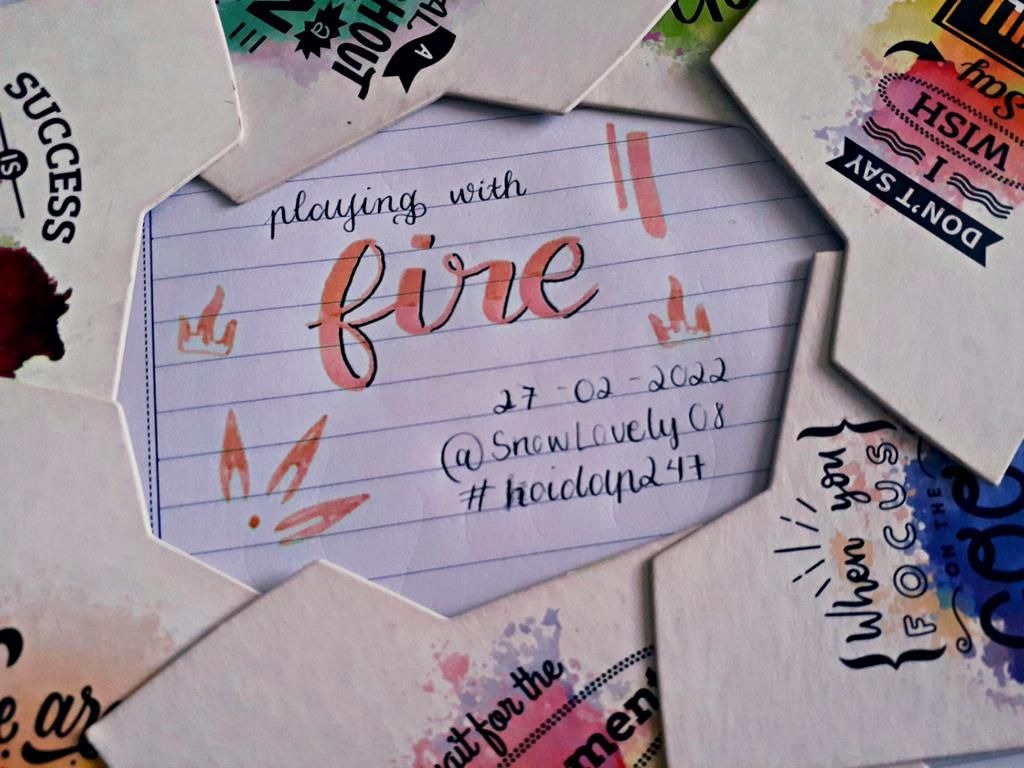 playing with
fire
27-02-2022
@SnowLovely08
#hoidap247
SUCCESS
IS
A
HOUT
DON'T SAY
I
WISH
Say
When you
FOCUS
ON THE
for the
are